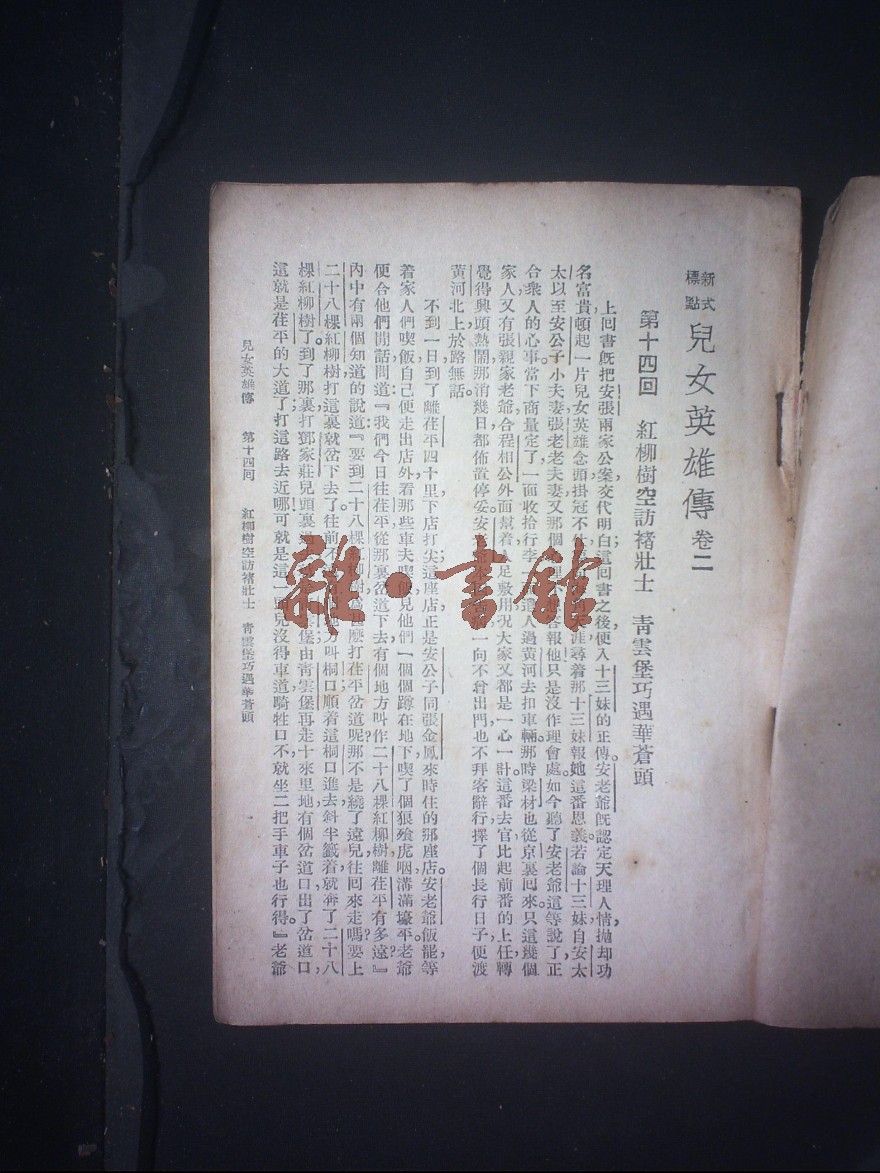 新式標點 兒女英雄傳 卷二
第十四回 紅柳樹空訪褚壯士 青雲堡巧遇華蒼頭
上回書旣把安張兩家公案交代明白,這回書之後,便入十三妹的正傳。安老爺旣認定天理人情,拋却功
名富貴,頓起一片兒女英雄念頭,掛冠不仕,涯尋着那十三妹,報她這番恩義。若論十三妹,自安太
太以至安公子小夫妻,張老老夫妻,又那個容報他?只是沒作理會處。如今聽了安老爺這等說了,正
合衆人的心事。當下商量定了,一面收拾行李,遣人過黃河去扣車輛。那時梁材也從京裏回來。只這幾個
家人,又有張親家老爺合程相公外面幫着,足敷用。况大家又都是一心一計,這番去官,比起前番的上任轉
覺得興頭熱鬧。那消幾日,都佈置停妥。安一向不曾出門,也不拜客辭行,擇了個長行日子,便渡
黃河北上。於路無話。
不到一日,到了離茌平四十里,下店打尖。這座店正是安公子同張金鳳來時住的那座店。安老爺飯罷,等
着家人們喫飯,自己便走出店外,看那些車夫喫飯。見他們一個個蹲在地下,喫了個狼飱虎咽,溝滿壕平。老爺
便合他們閒話,問道:『我們今日往茌平,從那裏岔道下去,有個地方叫作二十八棵紅柳樹,離茌平有多遠?』
內中有兩個知道的說道:『要到二十八棵紅柳樹,爲甚麽打茌平岔道呢?那不是繞了遠兒往回來走嗎?要上
二十八棵紅柳樹,打這裏就岔下去了。往前不方,叫桐口,順着這桐口進去,斜半籤着就奔了二十八
棵紅柳樹了。到了那裏,打鄧家莊兒頭裏過雲堡。由靑雲堡再走十來里地,有個岔道口,出了岔道口,
這就是茌平的大道了。打這路去近哪!可就是這一面兒沒得車道,騎牲口,不就坐二把手車子也行得。』老爺
兒女英雄傳 第十四回 紅柳樹空訪褚壯士 青雲堡巧遇華蒼頭
雜·書館